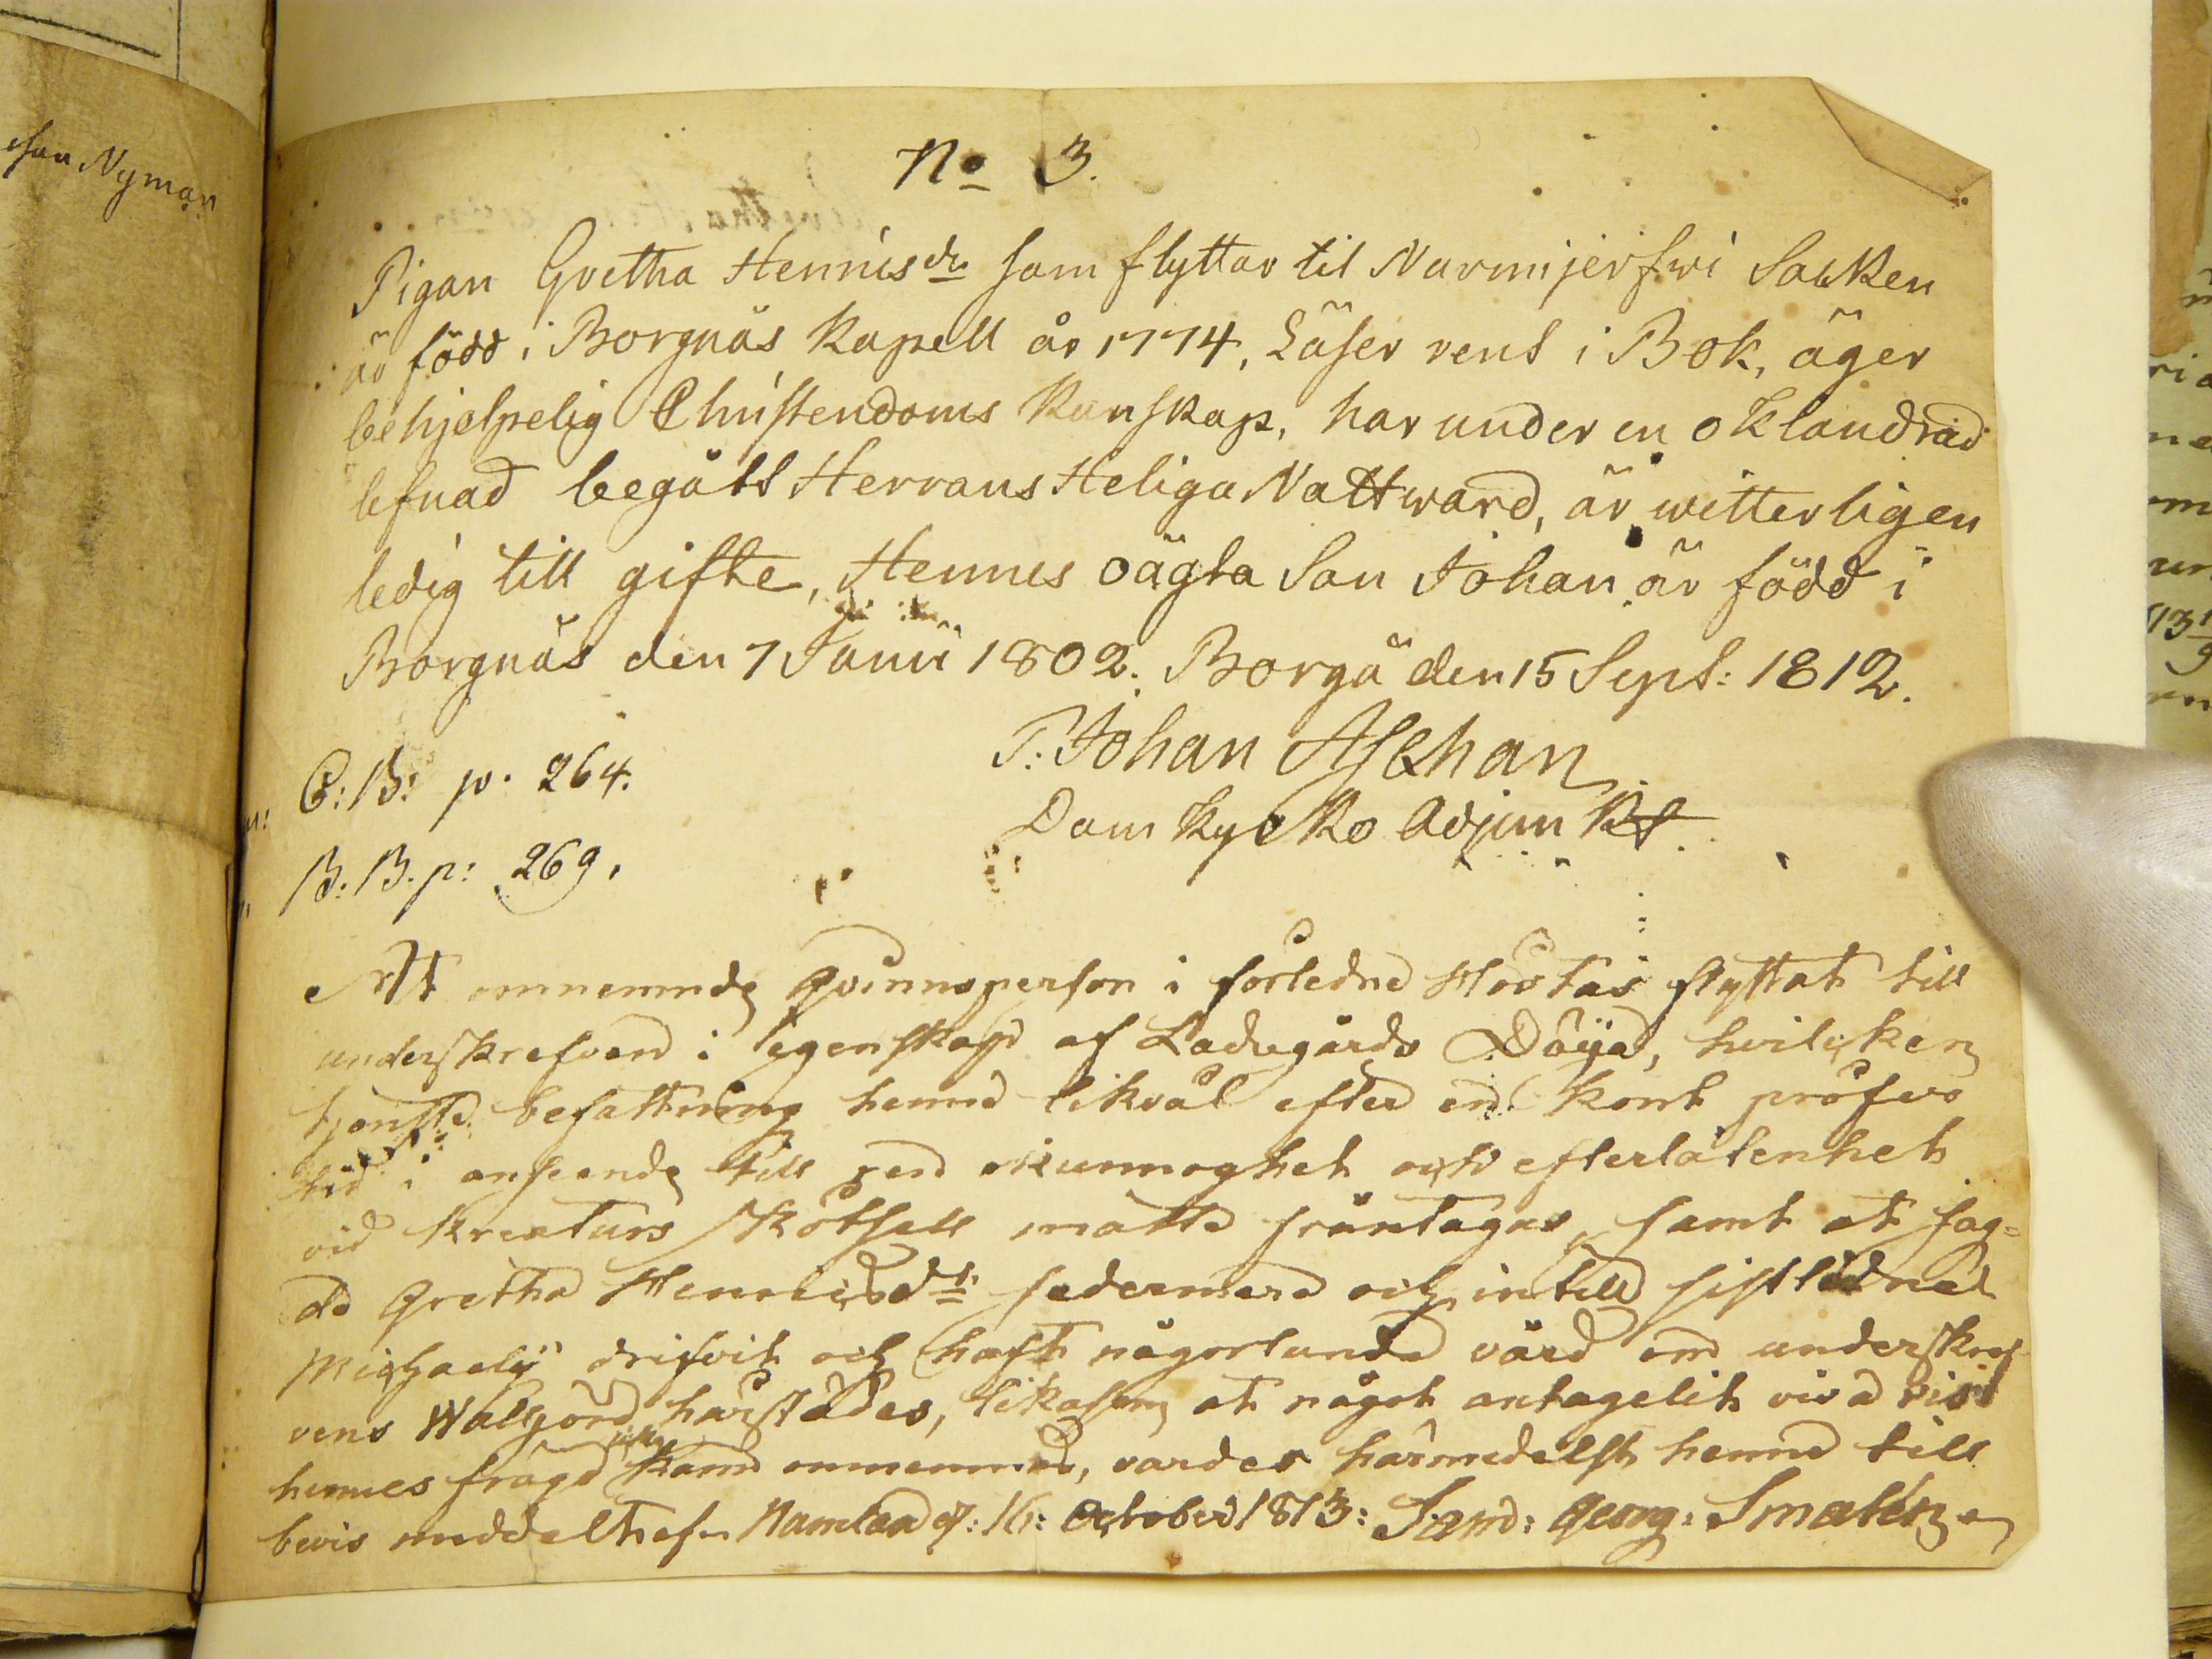 son Nyman
No 3.
Pigan Gretha Hennisdr som flyttar til Nurmijerfwi Socken
är född i Borgnäs Kapell år 1774, Läser rent i Bok, äger
behjelpelig Christendoms Kunskap, har under en oklandrad
lefnad begått Herrans Heliga Nattward, är witterligen
ledig till gifte, Hennes oägta Son Johan är född i
Borgnäs den 7 Junii 1802. Borgå den 15 Sept: 1812.
P: Johan Aschan
Domkyrko Adjunkt.
C:B: p. 264.
B:B. p: 269.
At omnemnde Qvinnsperson i förledne Höstas flyttat till
underskrefven i egenskap af Ladugårds Döija, hvilcken
tjenste befattning henne likväl efter en kort profvo
tid i anseende till okunnoghet och efterlåtenhet
vid kreaturs skötsell måtte fråntagas, samt at sag-
de Gretha Hennisdr: sedermera och intill sistledne
Michaely drifvit och haft någorlunda vård om underskref-
vens härstädes, likasom at något antagelit
hennes frågd kand omnemnd, vardes härmedelst henne till
bevis meddelt af 16: October 1813: Georg: Smalén